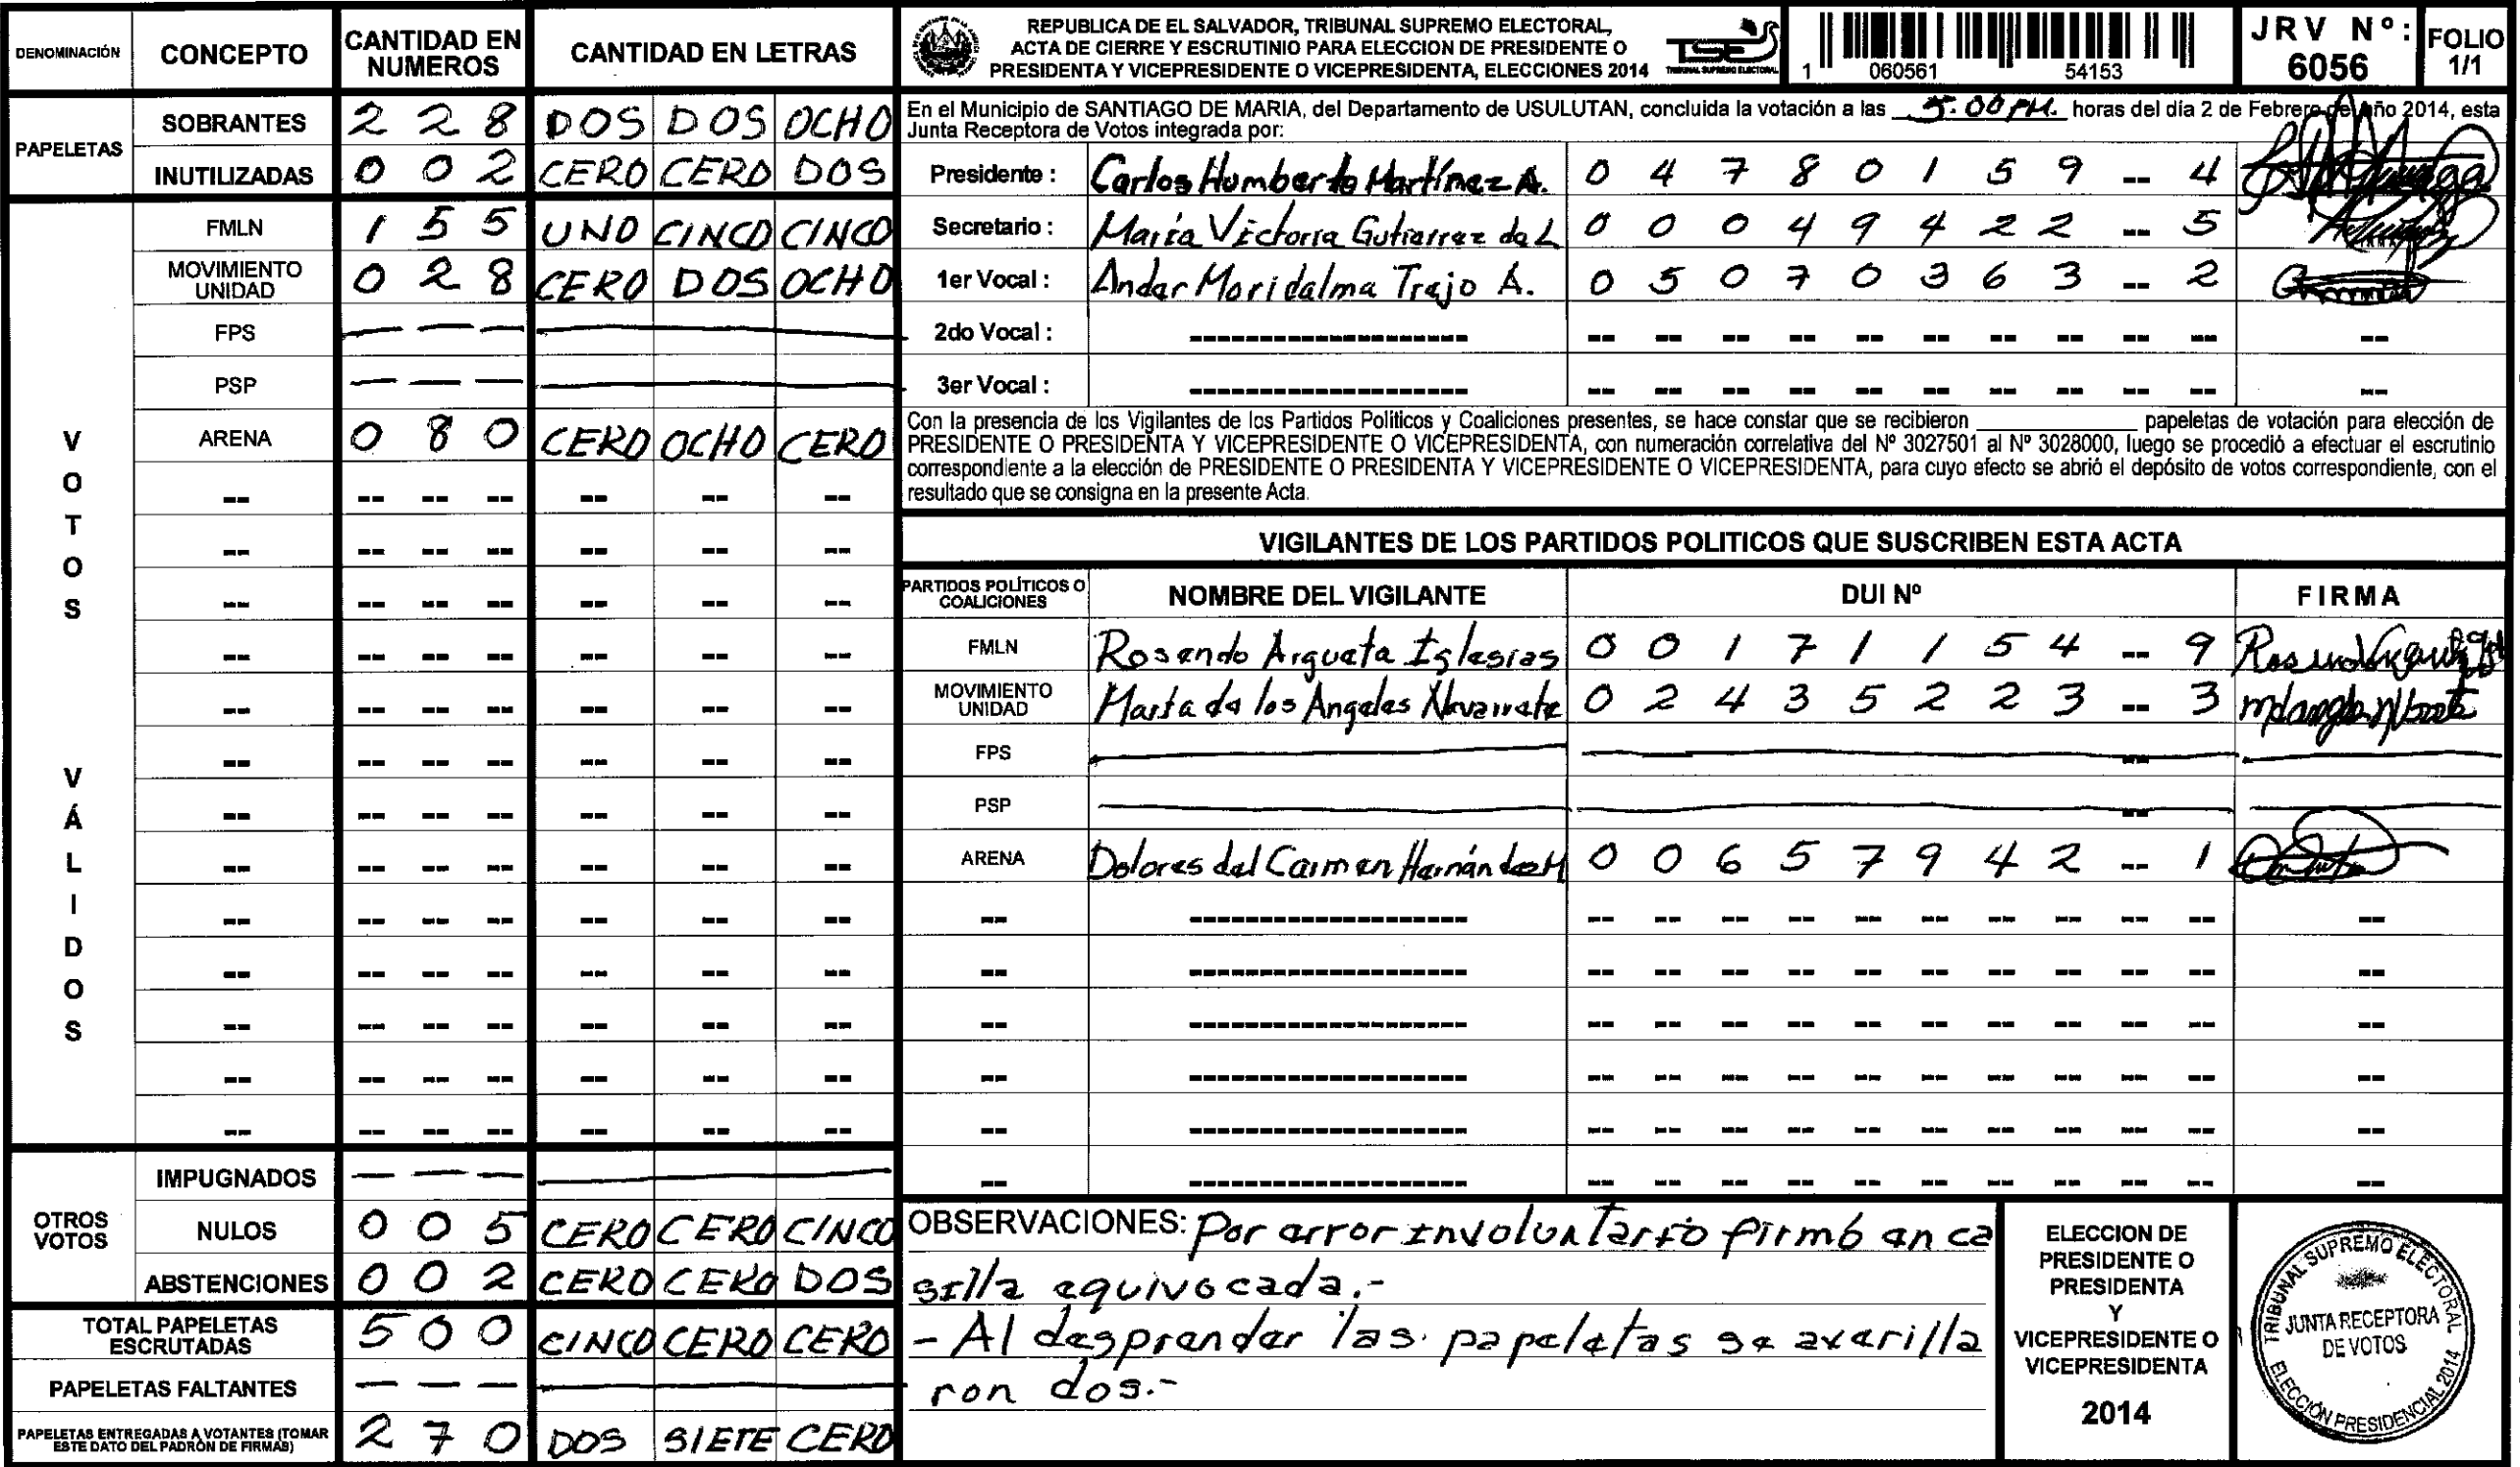 DENOMINACIÓN CONCEPTO CANTIDAD EN NUMEROS CANTIDAD EN LETRAS
PAPELETAS
SOBRANTES 2 2 8 DOS DOS OCHO
INUTILIZADAS 0 0 2 CERO CERO DOS
VOTOS VÁLIDOS
FMLN 1 5 5 UNO CINCO CINCO
MOVIMIENTO UNIDAD 0 2 8 CERO DOS OCHO
FPS
PSP
ARENA 0 8 0 CERO OCHO CERO
OTROS VOTOS
IMPUGNADOS
NULOS 0 0 5 CERO CERO CINCO
ABSTENCIONES 0 0 2 CERO CERO DOS
TOTAL PAPELETAS ESCRUTADAS 5 0 0 CINCO CERO CERO
PAPELETAS FALTANTES
PAPELETAS ENTREGADAS A VOTANTES (TOMAR ESTE DATO DEL PADRÓN DE FIRMAS) 2 7 0 DOS SIETE CERO
REPUBLICA DE EL SALVADOR, TRIBUNAL SUPREMO ELECTORAL,
ACTA DE CIERRE Y ESCRUTINIO PARA ELECCION DE PRESIDENTE O
PRESIDENTA Y VICEPRESIDENTE O VICEPRESIDENTA, ELECCIONES 2014
TSE
TRIBUNAL SUPREMO ELECTORAL
1 060561 54153
JRV Nº: 6056
FOLIO 1/1
En el Municipio de SANTIAGO DE MARIA, del Departamento de USULUTAN, concluida la votación a las 5:00 PM. horas del día 2 de Febrero del Año 2014, esta
Junta Receptora de Votos integrada por:
Presidente : Carlos Humberto Martínez A. 0 4 7 8 0 1 5 9 -- 4
Secretario : María Victoria Gutierrez de L 0 0 0 4 9 4 2 2 -- 5
1er Vocal : Ander Maridalma Trejo A. 0 5 0 7 0 3 6 3 -- 2
2do Vocal :
3er Vocal :
Con la presencia de los Vigilantes de los Partidos Politicos y Coaliciones presentes, se hace constar que se recibieron ______ papeletas de votación para elección de
PRESIDENTE O PRESIDENTA Y VICEPRESIDENTE O VICEPRESIDENTA, con numeración correlativa del Nº 3027501 al Nº 3028000, luego se procedió a efectuar el escrutinio
correspondiente a la elección de PRESIDENTE O PRESIDENTA Y VICEPRESIDENTE O VICEPRESIDENTA, para cuyo efecto se abrió el depósito de votos correspondiente, con el
resultado que se consigna en la presente Acta.
VIGILANTES DE LOS PARTIDOS POLITICOS QUE SUSCRIBEN ESTA ACTA
PARTIDOS POLÍTICOS O COALICIONES NOMBRE DEL VIGILANTE DUI Nº FIRMA
FMLN Rosendo Argueta Iglesias 0 0 1 7 1 1 5 4 -- 9
MOVIMIENTO UNIDAD Marta de los Angeles Navarrete 0 2 4 3 5 2 2 3 -- 3
FPS
PSP
ARENA Dolores del Carmen Hernández H 0 0 6 5 7 9 4 2 -- 1
OBSERVACIONES: Por error involuntario firmó en ca
silla equivocada.-
- Al desprender las papeletas se averilla
ron dos.-
ELECCION DE
PRESIDENTE O
PRESIDENTA
Y
VICEPRESIDENTE O
VICEPRESIDENTA
2014
TRIBUNAL SUPREMO ELECTORAL
JUNTA RECEPTORA
DE VOTOS
ELECCIÓN PRESIDENCIAL 2014